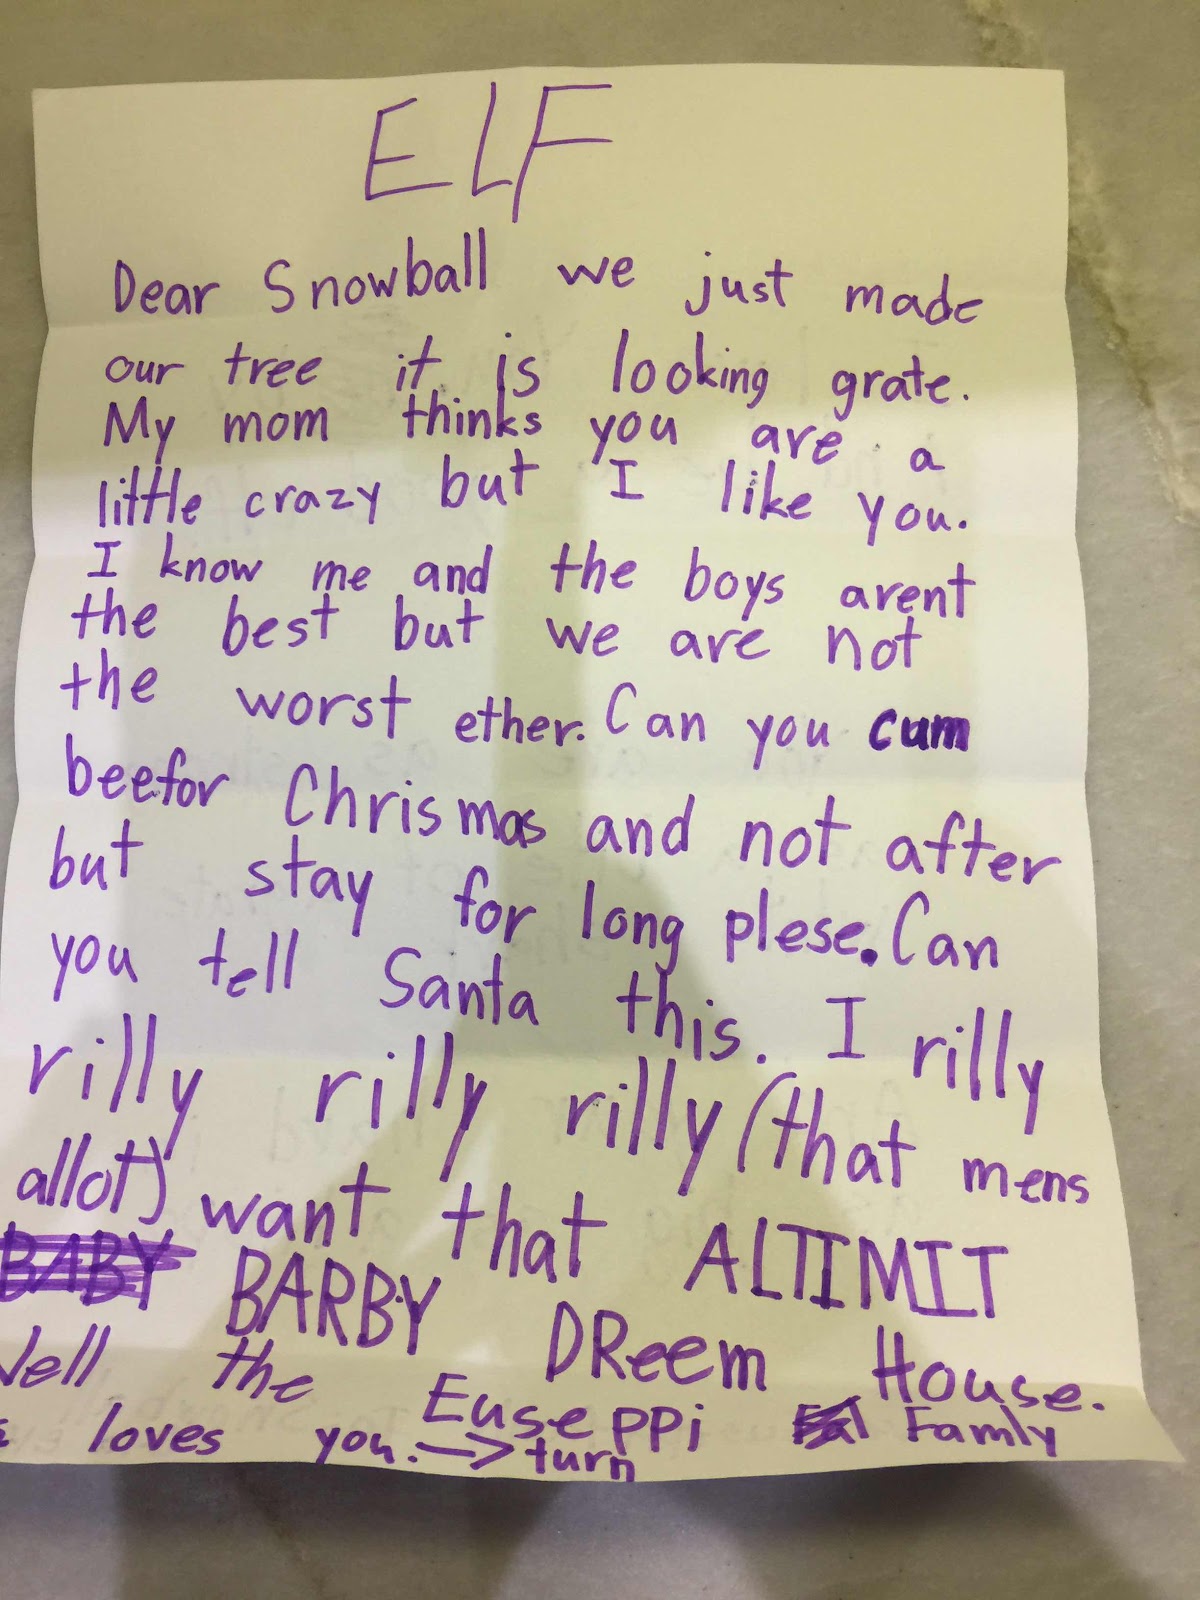 ELF
Dear Snowball we just made
our tree it is looking grate.
My mom thinks you are a
little crazy but I like you.
I know me and the boys arent
the best but we are not
the worst ether. Can you cum
beefor Chrismas and not after
but stay for long plese. Can
you tell Santa this. I rilly
rilly rilly rilly (that mens
allot) want that ALTIMIT
BABY BARBY DReem House.
the Euseppi Famly
loves you. → turn